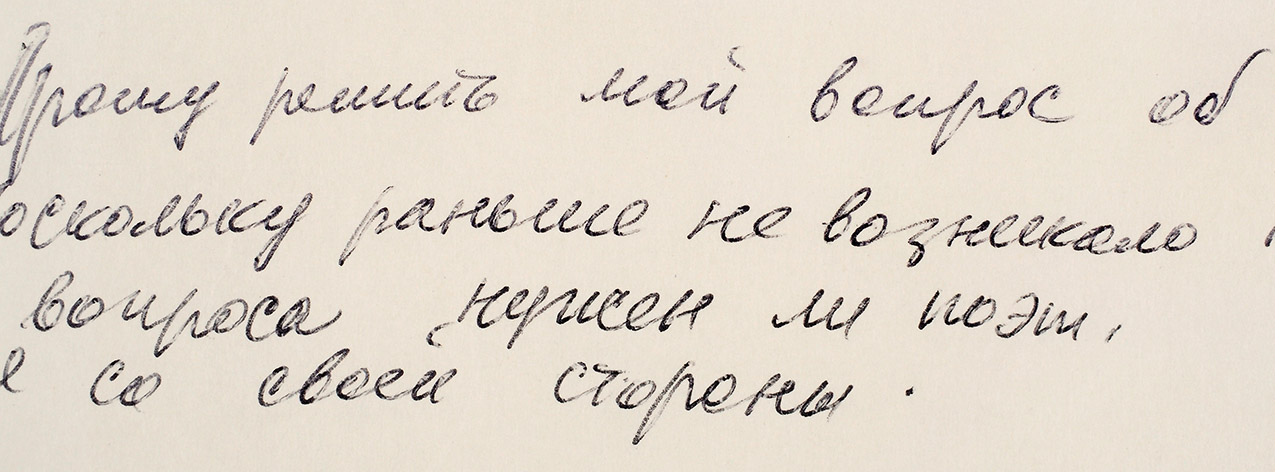 Прошу решить мой вопрос об
оскольку раньше не возникало
вопроса нужен ли поэт,
со своей стороны.